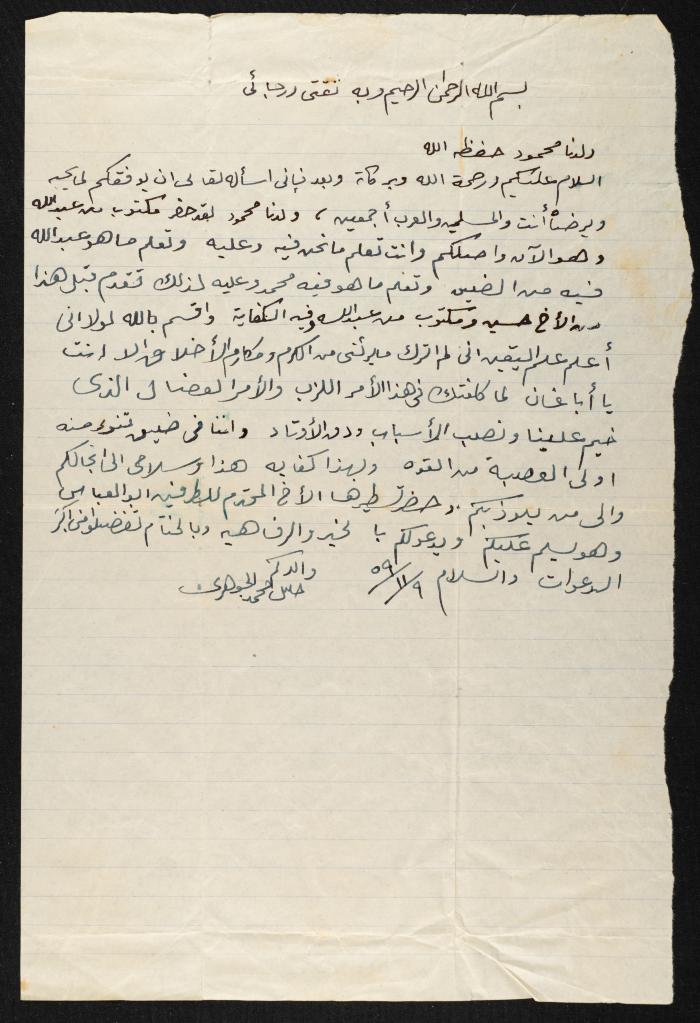 بسم الله الرحمن الرحيم وبه ثقتي ورجائي
ولدنا محمود حفظه الله
السلام عليكم ورحمة الله وبركاة وبعد فإني اسأله تعالى ان يوفقكم لما يحبه
ويرضاه أنت والمسلمين والعرب أجمعين ، ولدنا محمود لقد حضر مكتوب من عبدالله
وهو الآن واصلكم وانت تعلم ما نحن فيه وعليه وتعلم ما هو عبدالله
فيه من الضيق وتعلم ما هو فيه محمد وعليه لذلك تقدم قبل هذا
من الأخ حسين ومكتوب من عبدالله وفيه الكفاية واقسم بالله لولا انى
أعلم علم اليقين انى لم اترك ما يرثنى من الكرم ومكارم الأخلاق الا انت
يا أبا غسان لما كلفتك فى هذا الأمر اللزب والأمر العضال الذى
خيم علينا ونصب الأسباب ودق الأوتاد واننا فى ضيق تنوء منه
اولى العصبة من القوه وبهذا كفايه هذا وسلامى الى انجالكم
والى من يلوذ بكم وحضر تسطيرها الأخ المحترم للطرفين ابو العباس
وهو يسلم عليكم ويدعو لكم بالخير والرفاهيه وبالختام تفضلوا منى اكثر
الدعوات والسلام ٩/١١/٥٩ والدكم
خليل محمد الجوهرى